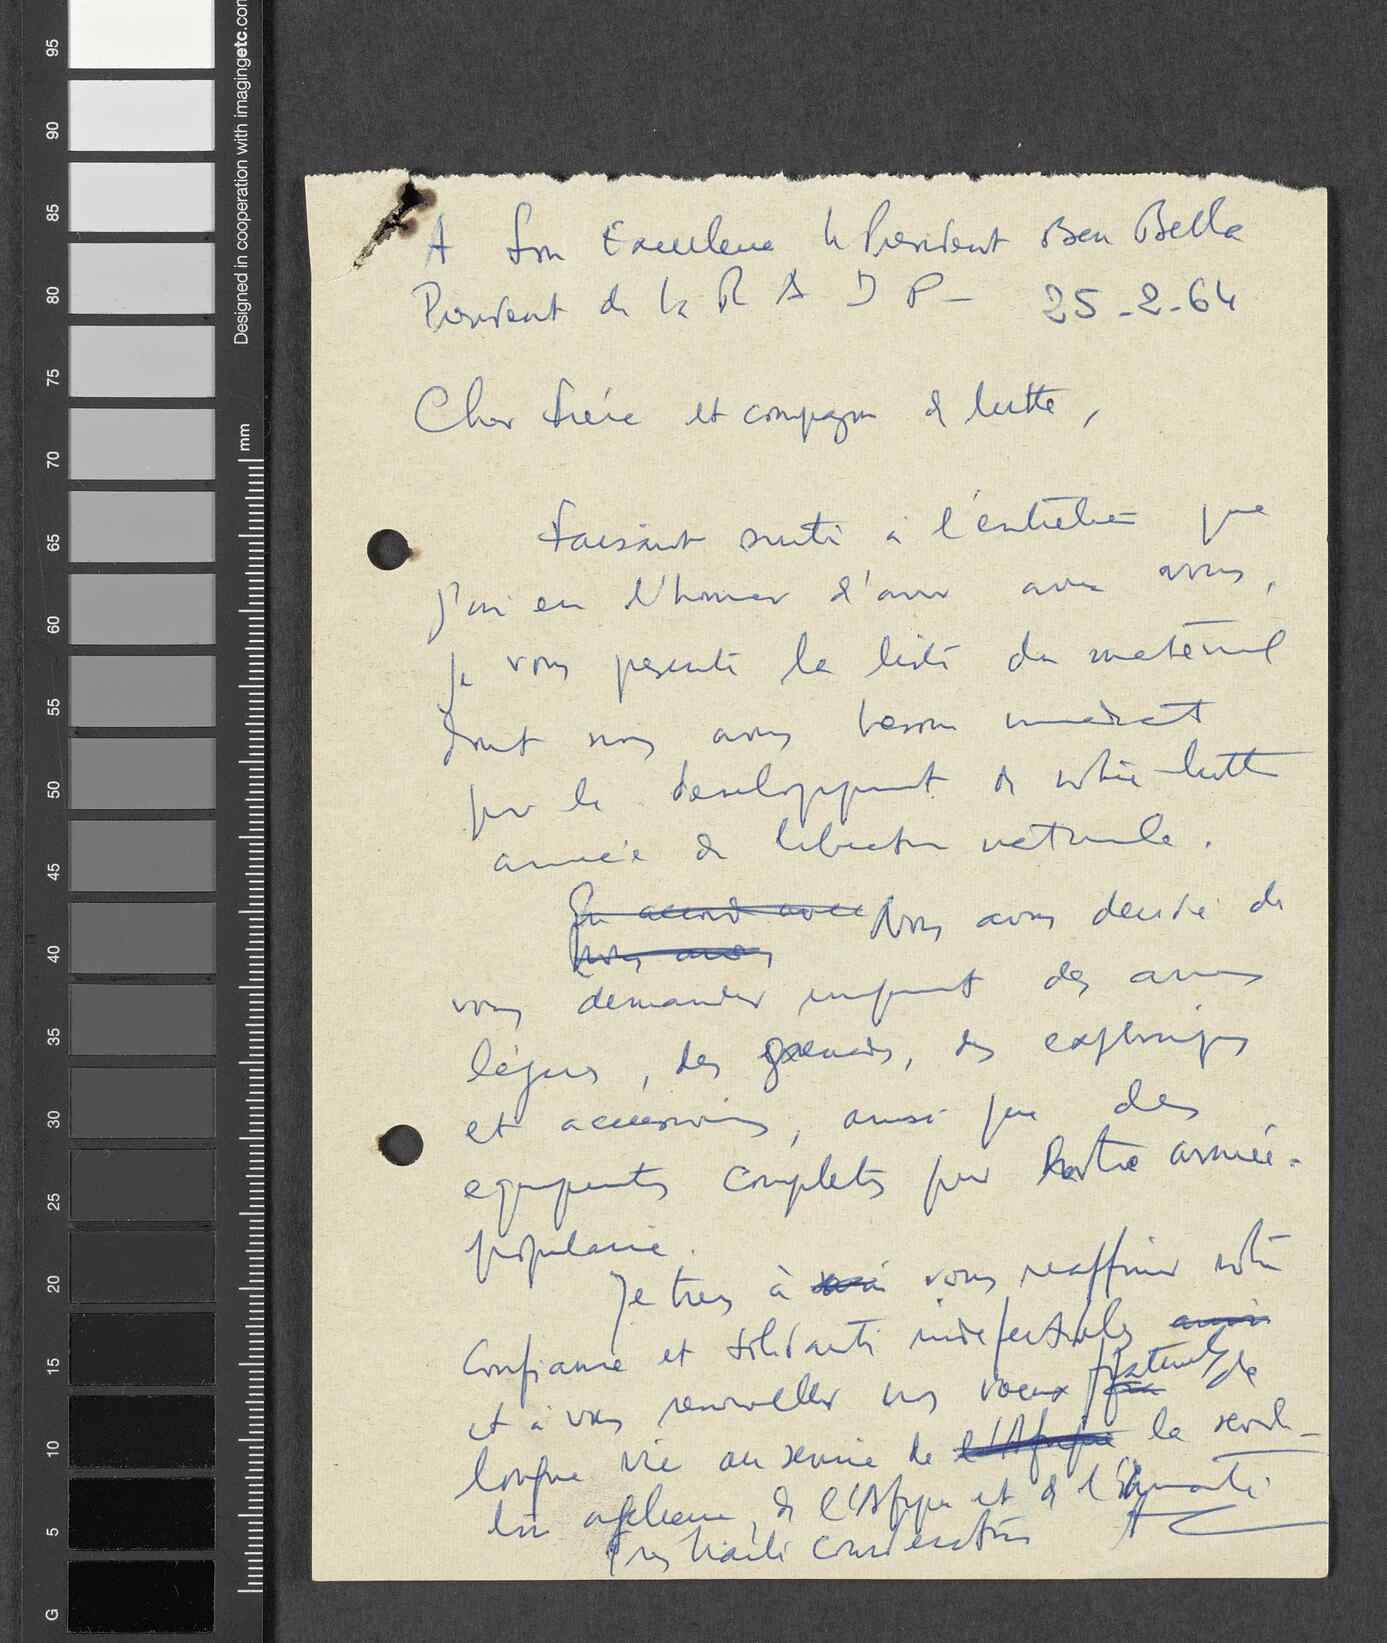 95
90
85
80
75
70
65
60
55
50
45
40
35
30
25
20
15
10
5
G
Designed in cooperation with imagingetc.com
mm
A Son Excellence le Président Ben Bella
Président de la R A D P - 25-2-64
Cher frère et compagnon de lutte,
Faisant suite à l'entretien que
j'ai eu l'honneur d'avoir avec vous,
je vous présente la liste du matériel
dont nous avons besoin immédiat
pour le développement de notre lutte
armée de libération nationale.
En accord avec Nous avons décidé de
nous avons
vous demander uniquement des armes
légères, des grenades, des explosifs
et accessoires, ainsi que des
équipements complets pour notre armée
populaire.
Je tiens à vous réaffirmer notre
confiance et solidarité indéfectibles
et à vous renouveler nos voeux fraternels de
longue vie au service de l'Afrique la révolu-
tion algérienne, de l'Afrique et de l'Humanité
Très haute considération